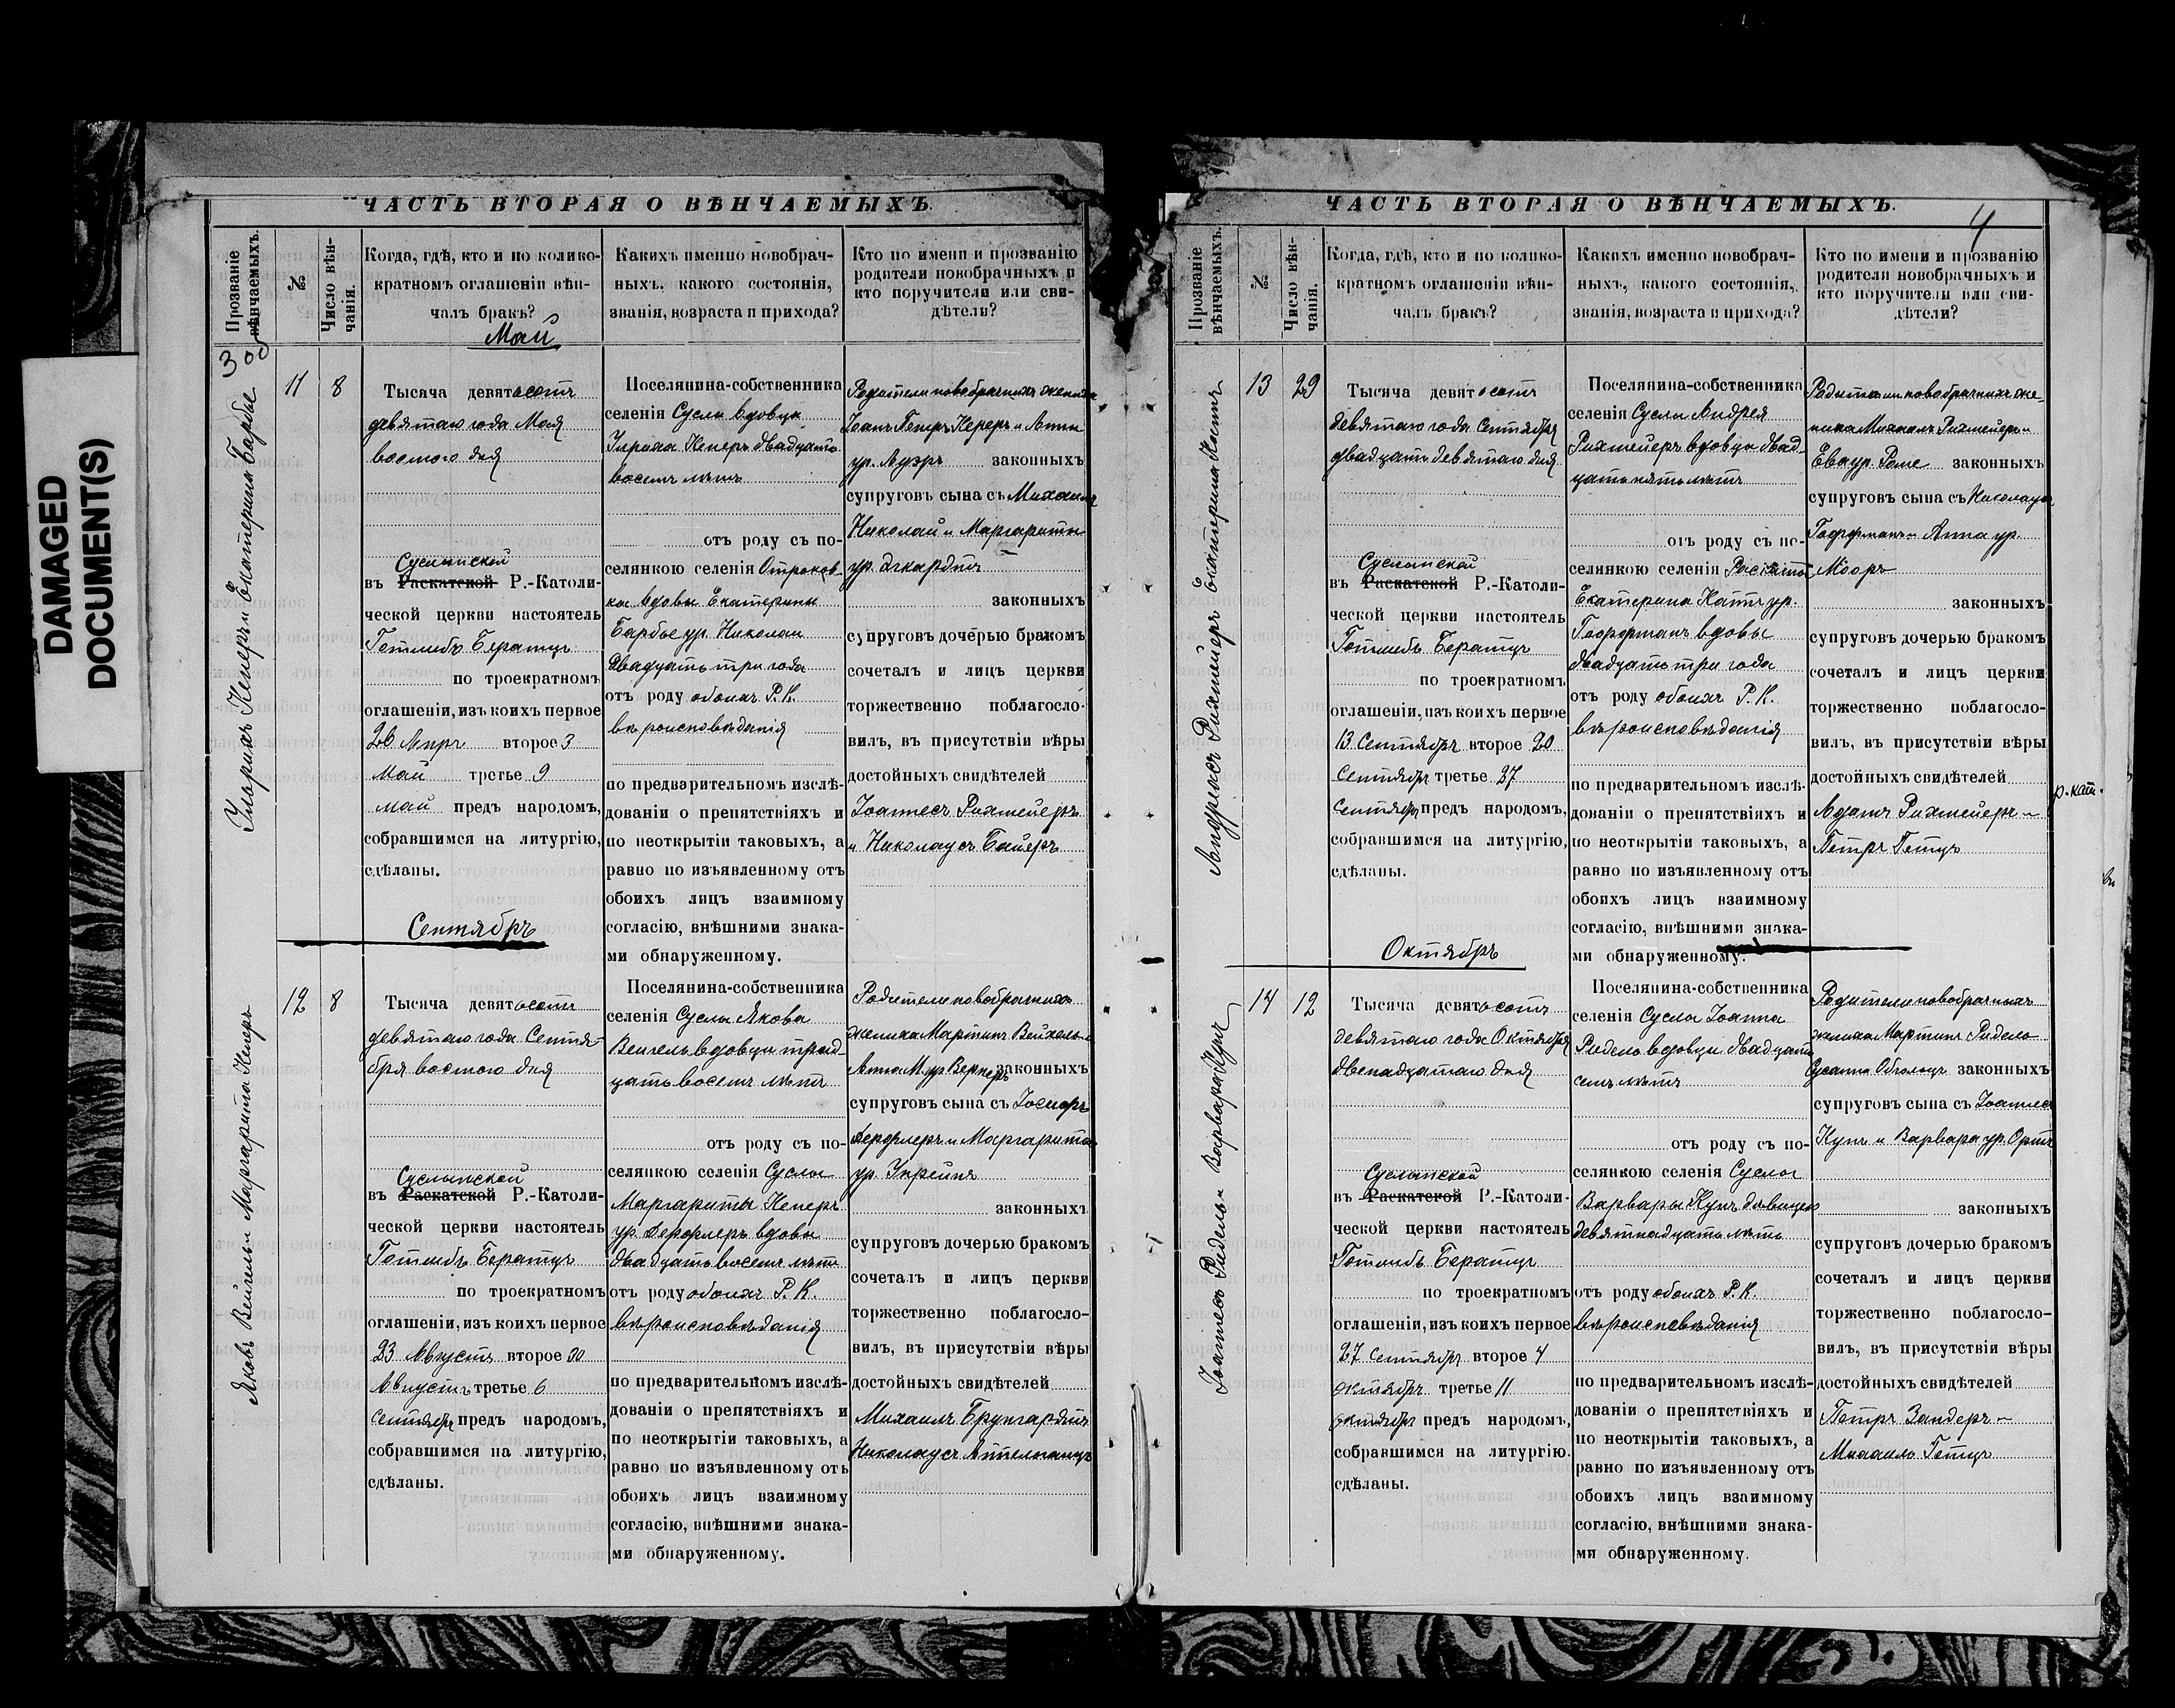 DAMAGED
DOCUMENT(S)
ЧАСТЬ ВТОРАЯ О ВѢНЧАЕМЫХЪ.
Прозваніе
вѣнчаемыхъ.
№
Число вѣн-
чанія.
Когда, гдѣ, кто и по колико-
кратномъ оглашеніи вѣн-
чалъ бракъ?
Какихъ именно новобрач-
ныхъ, какого состоянія,
званія, возраста и прихода?
Кто по имени и прозванію
родители новобрачныхъ и
кто поручители или сви-
дѣтели?
Май
3 об
Ульрихъ Кеперъ и Екатерина Барбье
11
8
Тысяча девятьсотъ
девятаго года Мая
восьмого дня
Суслынской
въ Раскатской Р.-Католи-
ческой церкви настоятель
Готлибъ Бератцъ
по троекратномъ
оглашеніи, изъ коихъ первое
26 Апр второе 3
Май третье 9
май предъ народомъ,
собравшимся на литургію,
сдѣланы.
Поселянина-собственника
селенія Суслы вдовца
Кеперъ двадцать
восемь лѣтъ
отъ роду съ по-
селянкою селенія
вдовы Екатерины
Барбье ур. Николаи
двадцать три года
отъ роду обоихъ Р. К.
вѣроисповѣданія
по предварительномъ изслѣ-
дованіи о препятствіяхъ и
по неоткрытіи таковыхъ, а
равно по изъявленному отъ
обоихъ лицъ взаимному
согласію, внѣшними знака-
ми обнаруженному.
Родители новобрачныхъ жениха
Петръ Кеперъ и Анны
ур. законныхъ
супруговъ сына съ Михаилъ
Николай и Маргариты
ур. Экардтъ
законныхъ
супруговъ дочерью бракомъ
сочеталъ и лицъ церкви
торжественно поблагосло-
вилъ, въ присутствіи вѣры
достойныхъ свидѣтелей
Іоаннесъ Рихмейеръ
и Николаусъ Байеръ
Сентябрь
Яковъ Вейгель и Маргарита Кеперъ
12
8
Тысяча девятьсотъ
девятаго года Сентя-
бря восьмого дня
Суслынской
въ Раскатской Р.-Католи-
ческой церкви настоятель
Готлибъ Бератцъ
по троекратномъ
оглашеніи, изъ коихъ первое
23 Августъ второе 30
Августъ третье 6
Сентябрь предъ народомъ,
собравшимся на литургію,
сдѣланы.
Поселянина-собственника
селенія Суслы Якова
Вейгель вдовца трид-
цать восемь лѣтъ
отъ роду съ по-
селянкою селенія Суслы
Маргариты Кеперъ
ур. Дерфлеръ вдовы
двадцать восемь лѣтъ
отъ роду обоихъ Р. К.
вѣроисповѣданія
по предварительномъ изслѣ-
дованіи о препятствіяхъ и
по неоткрытіи таковыхъ, а
равно по изъявленному отъ
обоихъ лицъ взаимному
согласію, внѣшними знака-
ми обнаруженному.
Родители новобрачныхъ
жениха Мартинъ Вейгель и
Анна М. ур. Вернеръ законныхъ
супруговъ сына съ Іосифъ
Дерфлеръ и Маргарита
ур. Унрейнъ
законныхъ
супруговъ дочерью бракомъ
сочеталъ и лицъ церкви
торжественно поблагосло-
вилъ, въ присутствіи вѣры
достойныхъ свидѣтелей
Михаилъ Брунгардтъ
Николаусъ
ЧАСТЬ ВТОРАЯ О ВѢНЧАЕМЫХЪ.
4
Прозваніе
вѣнчаемыхъ.
№
Число вѣн-
чанія.
Когда, гдѣ, кто и по колико-
кратномъ оглашеніи вѣн-
чалъ бракъ?
Какихъ именно новобрач-
ныхъ, какого состоянія,
званія, возраста и прихода?
Кто по имени и прозванію
родители новобрачныхъ и
кто поручители или сви-
дѣтели?
Андреасъ Рихмейеръ Екатерина Каттъ
13
29
Тысяча девятьсотъ
девятаго года Сентября
двадцать девятаго дня
Суслынской
въ Раскатской Р.-Католи-
ческой церкви настоятель
Готлибъ Бератцъ
по троекратномъ
оглашеніи, изъ коихъ первое
13 Сентябрь второе 20
Сентябрь третье 27
Сентябрь предъ народомъ,
собравшимся на литургію,
сдѣланы.
Поселянина-собственника
селенія Суслы Андрея
Рихмейеръ вдовца двад-
цать пять лѣтъ
отъ роду съ по-
селянкою селенія Раскаты
Екатерина Каттъ ур.
Гоффманъ вдовы
двадцать три года
отъ роду обоихъ Р. К.
вѣроисповѣданія
по предварительномъ изслѣ-
дованіи о препятствіяхъ и
по неоткрытіи таковыхъ, а
равно по изъявленному отъ
обоихъ лицъ взаимному
согласію, внѣшними знака-
ми обнаруженному.
Родители новобрачныхъ же-
ниха Михаилъ Рихмейеръ и
Ева ур. Роме законныхъ
супруговъ сына съ Николауса
Гоффманъ и Анна ур.
Мооръ
законныхъ
супруговъ дочерью бракомъ
сочеталъ и лицъ церкви
торжественно поблагосло-
вилъ, въ присутствіи вѣры
достойныхъ свидѣтелей
Адамъ Рихмейеръ и
Петръ Гетцъ
р.-кат.
Октябрь
Іоаннесъ Ридель и Варвара Кунъ
14
12
Тысяча девятьсотъ
девятаго года Октября
двенадцатаго дня
Суслынской
въ Раскатской Р.-Католи-
ческой церкви настоятель
Готлибъ Бератцъ
по троекратномъ
оглашеніи, изъ коихъ первое
27 Сентябрь второе 4
октябрь третье 11
октябрь предъ народомъ,
собравшимся на литургію.
сдѣланы.
Поселянина-собственника
селенія Суслы Іоанна
Ридель вдовца двадцать
семь лѣтъ
отъ роду съ по-
селянкою селенія Суслы
Варвары Кунъ дѣвицею
девятнадцать лѣтъ
отъ роду обоихъ Р. К.
вѣроисповѣданія
по предварительномъ изслѣ-
дованіи о препятствіяхъ и
по неоткрытіи таковыхъ, а
равно по изъявленному отъ
обоихъ лицъ взаимному
согласію, внѣшними знака-
ми обнаруженному.
Родители новобрачныхъ
жениха Мартинъ Ридель
Сусанна Обгольцъ законныхъ
супруговъ сына съ Іоаннеса
Кунъ и Варвара ур. Ортъ
законныхъ
супруговъ дочерью бракомъ
сочеталъ и лицъ церкви
торжественно поблагосло-
вилъ, въ присутствіи вѣры
достойныхъ свидѣтелей
Петръ Зандеръ и
Михаилъ Гетцъ